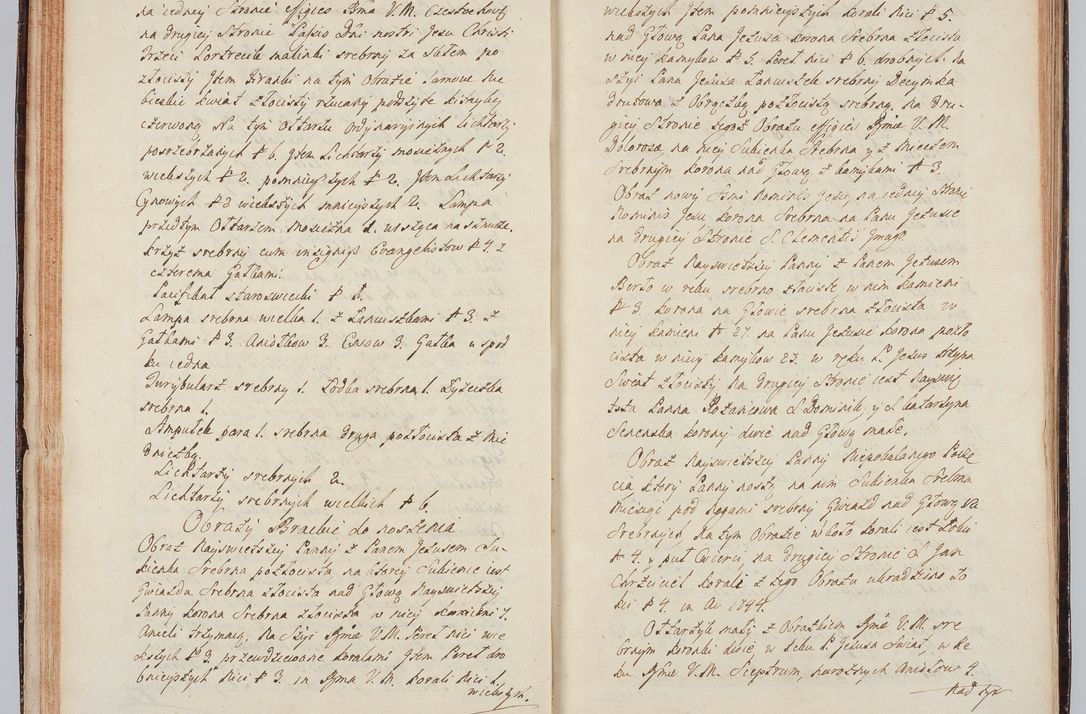 na iedney Stronie effigies Bma V. M. Czestochov:
na drugiey Stronie Passio Dni nostri Jesu Christi
Trzeci Portrecik malinki srebrny za Szkłem po
złocisty Jtem Branki na tym Obrazie
bieskie kwiat złocisty rzucany podszyte kitayką
czerwoną Na tym Ottarzu ordynaryinych Lichtarzy
posrzebrzanych # 6. Jtem Lichtarzy mosiężnych # 2.
wiekszych # 2. pomnieyszych # 2. Jtem Lichtarzy
Cynowych # 2 wiekszych mnieyszych 2. Lampa
przedtym Ottarzem Mosiezna 1. wisząca na sznurze
krzyż srebrny cum insignijs Evangelistow # 4. z
czterema Gałkami.
Pacifikał staroswiecki # 1.
Lampa srebrna wielka 1. z Łancuszkami # 3. z
Gałkami # 3. Aniołkow 3. 3. Gałka u spod
ku iedna
Turybularz srebrny 1. Łodka srebrna 1. Łyzeczka
srebrna 1.
Ampułek para 1. srebrna druga pozłocista z Mie
dniczką.
Lichtarzy srebrnych 2.
Lichtarzy srebrnych wielkich # 6.
Obrazy Brackie do noszenia
Obraz Nayswietszey Panny z Panem Jezusem Su-
kienka Srebrna pozłocista, na ktorey Sukience iest
Gwiazda Srebrna złocista nad Głową Nayswietszey
Panny korona Srebrna złocista w niey kamieni 7.
Anieli trzymaią, Na Szyi Bmæ V. M. Pereł nici wie
kszych # 3. przewdziewane koralami Jtem Pereł dro
bnieyszych Nici # 3. in Bma V. M. korali Nici 1.
wiekszych.
wiekszych Jtem pomnieyszych korali Nici # 5.
nad Głową Pana Jezusa korona Srebrna złocista
w niey kamykow # 5. Pereł Nici # 6. drobnych. Na
szyi Pana Jezusa Łancuszek srebrny Decymka
drutowa z Obrączką pozłocistą srebrną, na dru-
giey Stronie tegoż Obrazu effigies Bmæ V. M.
Dolorosæ na niey Sukienka Srebrna y z Mieczem
Srebrnym korona nad Głową z kamykami # 3.
Obraz nowy Ssmi Nominis Jesu, na iedney Stronie
Nominis Jesu korona Srebrna na Panu Jezusie
na drugiey Stronie S. Clementis Jmago
Obraz Nayswietszey Panny z Panem Jezusem
Berło w reku srebrno złociste w nim kamieni
# 3. korona na Głowie srebrna złocista w
niey kamieni # 27. na Panu Jezusie korona pozło
cista w niey kamykow 23. w reku P. Jezus trzyma
Swiat złocisty na drugiey Stronie iest Nayswię
tsza Panna Rożańcowa S. Dominik, y S. Katarzyna
Senenska korony dwie nad Głową małe.
Obraz Nayswietszey Panny Niepokalanego Poczę
cia ktory Panny noszą na nim Sukienka Srebrna
Miesiąc pod Nogami srebrny Gwiazd nad Głową 12
Srebrnych Na tym Obrazie wkoło korali iest
# 4. y puł Cwierci, na drugiey Stronie S. Jan
Chrzciciel korali z tego Obrazu ukradziono Ło
kci # 4. in Ao 1744.
Ottarzyk mały z Obrazkiem Bmæ V. M. sre
brnym koronki dwie, w reku P. Jezusa Swiat, w Re
ku Bmæ V. M. Sceptrum, narożnych Aniołow 4
Nad tym